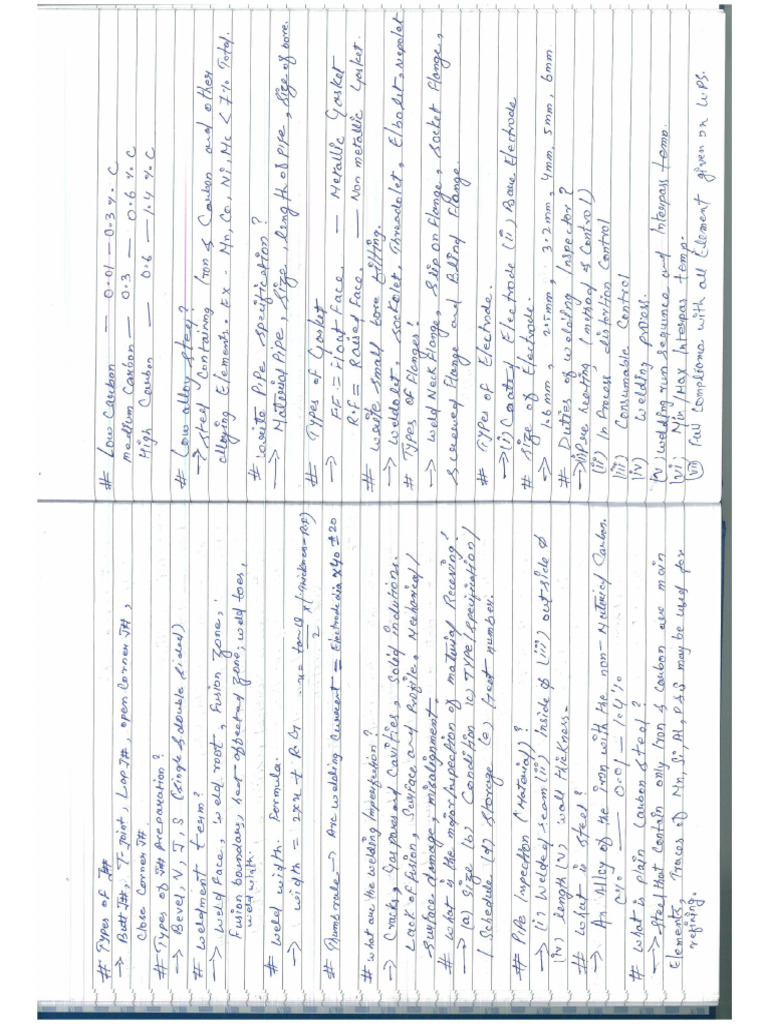 # Types of JH
→ Butt JH, T-Joint, Lap JH, open Corner JH,
Close Corner JH
# Types of JH preparation?
→ Bevel, V, J, S (single & double sided)
# weldment term?
→ weld face, weld root, Fusion zone,
Fusion boundary, heat affected zone, weld toes,
weld width.
# weld width Formula.
→ width = 2xx + R.G x = tan θ/2 x (Thickness - R.F)
# Thumb rule → Arc welding current = Electrode dia x 40 ± 20
# what are the welding Imperfection?
→ Cracks, Gas pores and Cavities, Solid inclutions.
Lack of fusion, Surface and Profile, Mechanical/
Surface damage, misalignment.
# what is the major Inspection of material Receving?
→ (a) Size (b) Condition (c) Type/Specification/
/ Schedule (d) Storage (e) heat number.
# Pipe Inspection (Material)?
→ (i) welded seam (ii) inside ø (iii) outside ø
(iv) length (v) wall thickness-
# what is steel?
→ An Alloy of the iron with the non-Material Carbon.
C% — 0.01 — 1.4 %
# what is plain Carbon steel?
→ Steel that contain only Iron & Carbon are main
Elements, Traces of Mn, Si, Al, P, S may be used for
refining.
# Low Carbon — 0.01 — 0.3 %. C
medium Carbon — 0.3 — 0.6 %. C
High Carbon — 0.6 — 1.4 %. C
# Low alloy steel?
→ steel containing Iron & Carbon and other
alloying Elements. Ex - Mn, Co, Ni, Mc < 7% Total.
# write Pipe specification?
→ Material Pipe, Size, length of pipe, Size of bore.
# Types of Gasket
→ F.F = Float Face. — Metallic Gasket
R.F = Raised Face. — Non metallic Gasket.
# write small bore fitting.
→ weldolet, Sockolet, Threadolet, Elbolet, nepolet
# Types of Flanges?
→ weld Neck Flange, Slip on Flange, Socket Flange,
Screwed Flange and Blind Flange.
# Types of Electrode.
→ (i) Coated Electrode (ii) Bare Electrode
# Size of Electrode.
→ 1.6mm, 2.5mm, 3.2mm, 4mm, 5mm, 6mm
# Duties of welding Inspector?
→ (i) Pre heating (method & Control)
(ii) In Process distortion Control
(iii) Consumable Control
(iv) welding process.
(v) welding run sequence and Interpass temp.
(vi) Min/Max Interpas temp.
(vii) Full Complioma with all Element given on W.P.S.